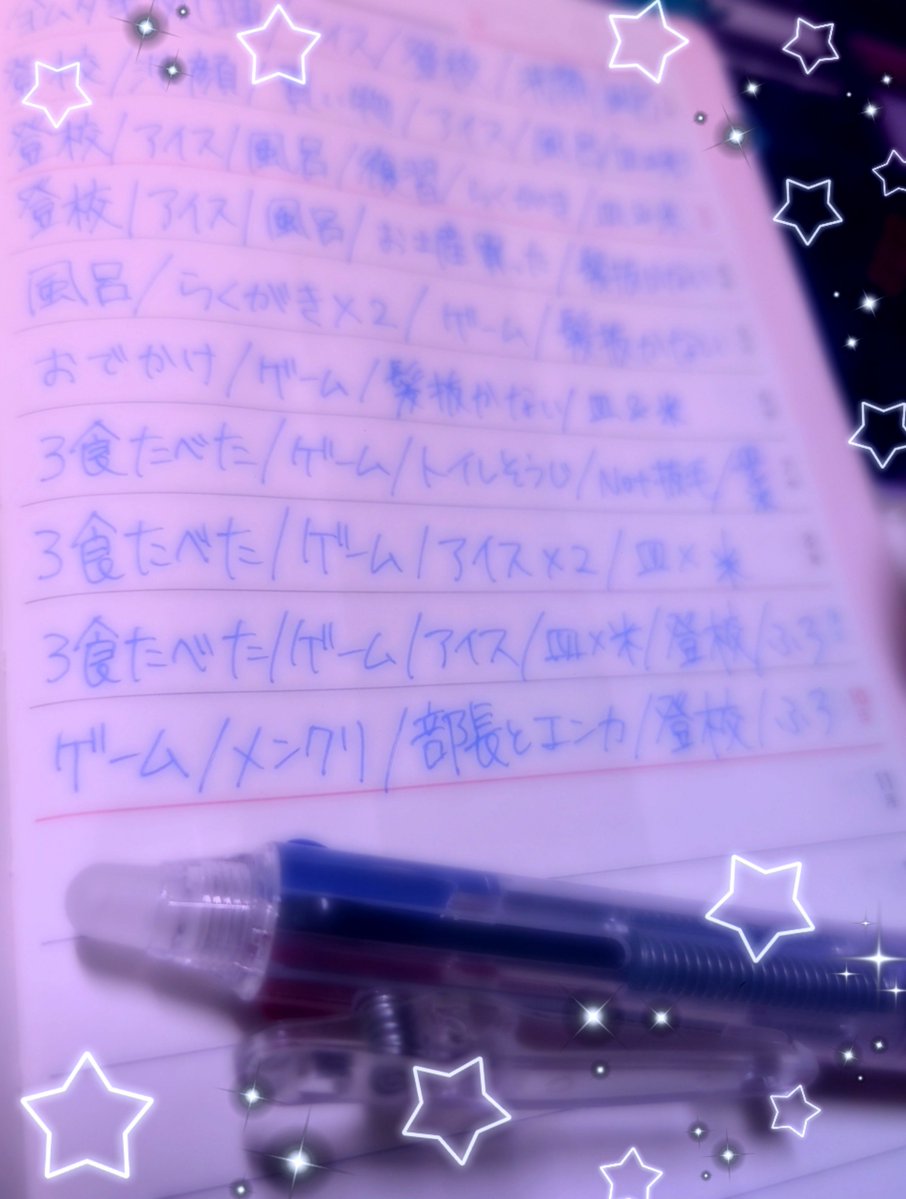 登校/洗顔/買い物/アイス/風呂/
登校/アイス/風呂/復習/らくがき/皿&米
登校/アイス/風呂/お土産買った/髪抜かない
風呂/らくがき×2/ゲーム/髪抜かない
おでかけ/ゲーム/髪抜かない/皿&米
3食たべた/ゲーム/トイレそうじ/Not抜毛/
3食たべた/ゲーム/アイス×2/皿×米
3食たべた/ゲーム/アイス/皿×米/登校/ふろ
ゲーム/メンクリ/部長とエンカ/登校/ふろ